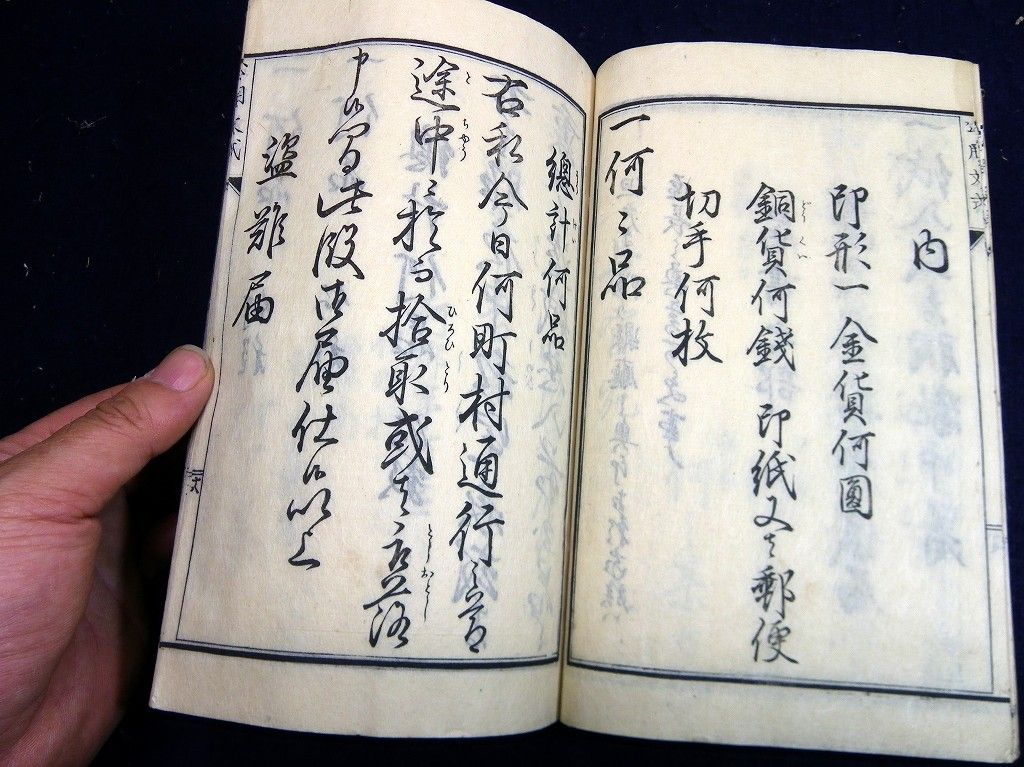 内
印形一 金貨何圓
銅貨何錢 印紙又ハ郵便
切手何枚
一何々品
總計何品
右私今日何町村通行之節
途中ニ於而拾取或ハ取落
申候間此段御届仕候以上
盜難届